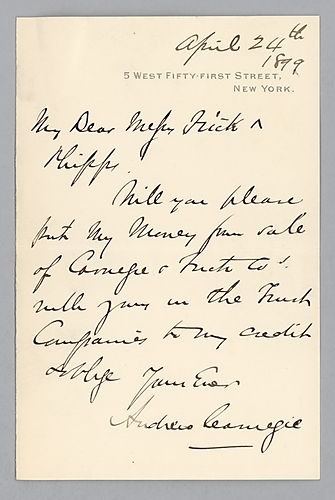 April 24th
1899
5 WEST FIFTY-FIRST STREET,
NEW YORK.
My Dear Messrs Frick &
Phipps
Will you please
put my money from sale
of Carnegie & Frick Co's.
with yours in the Trust
Companies to my credit
& oblige Yours Ever
Andrew Carnegie